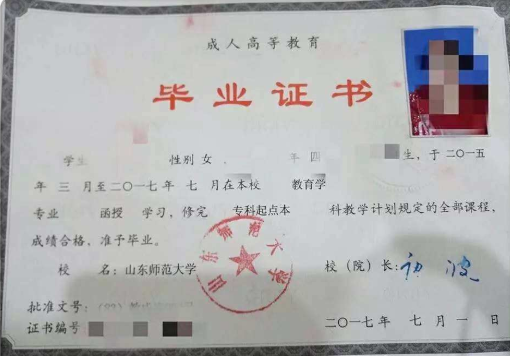 成人高等教育
毕业证书
学生 性别 女 、 年 四 生，于二〇一五
年 三 月至二〇一七年 七 月在本校 教育学
专业 函授 学习，修完 专科起点本 科教学计划规定的全部课程，
成绩合格，准予毕业。
校 名：山东师范大学 校（院）长：
山东师范大学
批准文号：
证书编号
二〇一七年 七 月 一 日